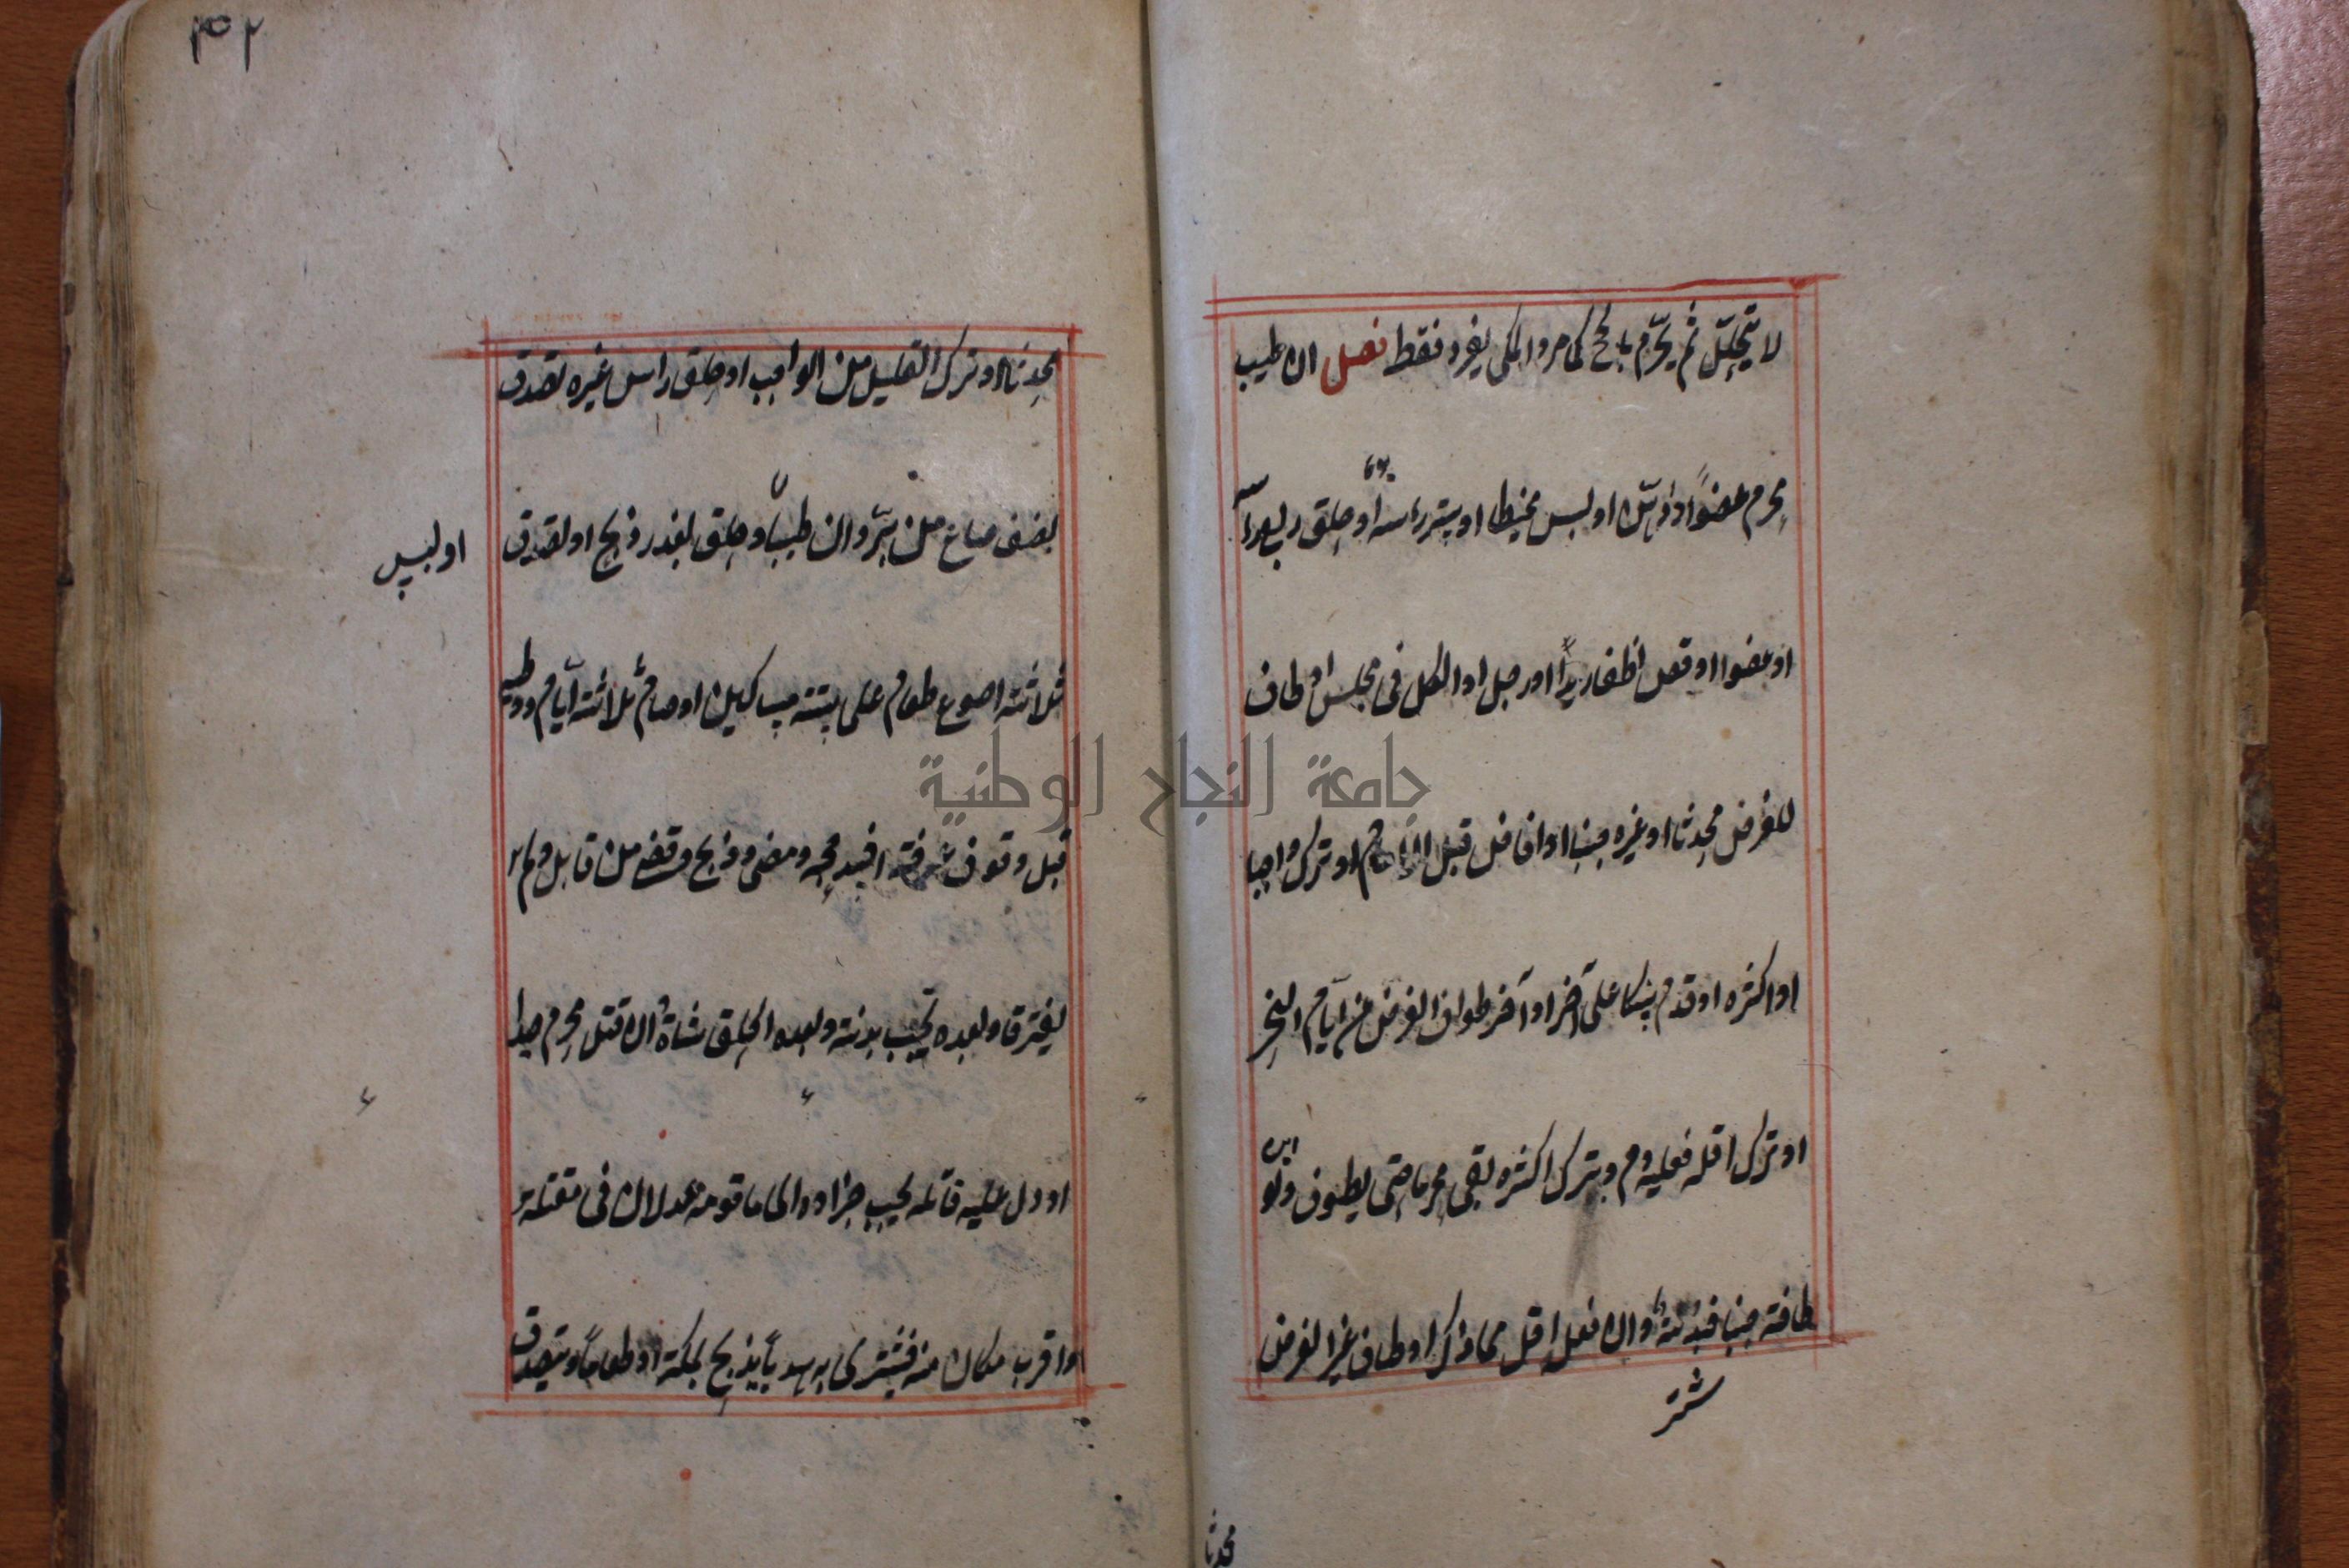 لا يتحلل ثم يحرم بالحج كما مر والمكى يفرد فقط فصل ان طيب
محرم عضوا او ادهن او لبس مخيطا او ستر راسه يوما او حلق ربع راسه
او عضوا او قص اظفار يد او رجل او الكل فى مجلس او طاف
للفرض محدثا او غيره جنبا او افاض قبل الامام او ترك واجبا
او اكثره او قدم نسكا على آخر او آخر طواف الفرض عن ايام النحر
او ترك اقله فعليه دم وبترك اكثره بقى محرما حتى يطوف ولو
طافه جنبا فبدنة وان فعل اقل مما ذكر او طاف غير الفرض
محدثا
٣٢
محدثا او ترك القليل من الواجب او حلق راس غيره تصدق
بنصف صاع من بر وان طيب او حلق بعذر ذبح او تصدق
او لبس
ثلاثة اصوع طعام على ستة مساكين او صام ثلاثة ايام ووطيه
قبل وقوف عرفة افسد حجه ومضى وذبح وقضى من قابل ولم
يفترقا وبعده تجب بدنة وبعد الحلق شاة ان قتل محرم صيدا
او دل عليه قاتله يجب جزاوه اى ما قومه عدلان فى مقتله
واقرب مكان منه فيشترى به هديا يذبح بمكة او طعاما ويتصدق
جامعة النجاح الوطنية